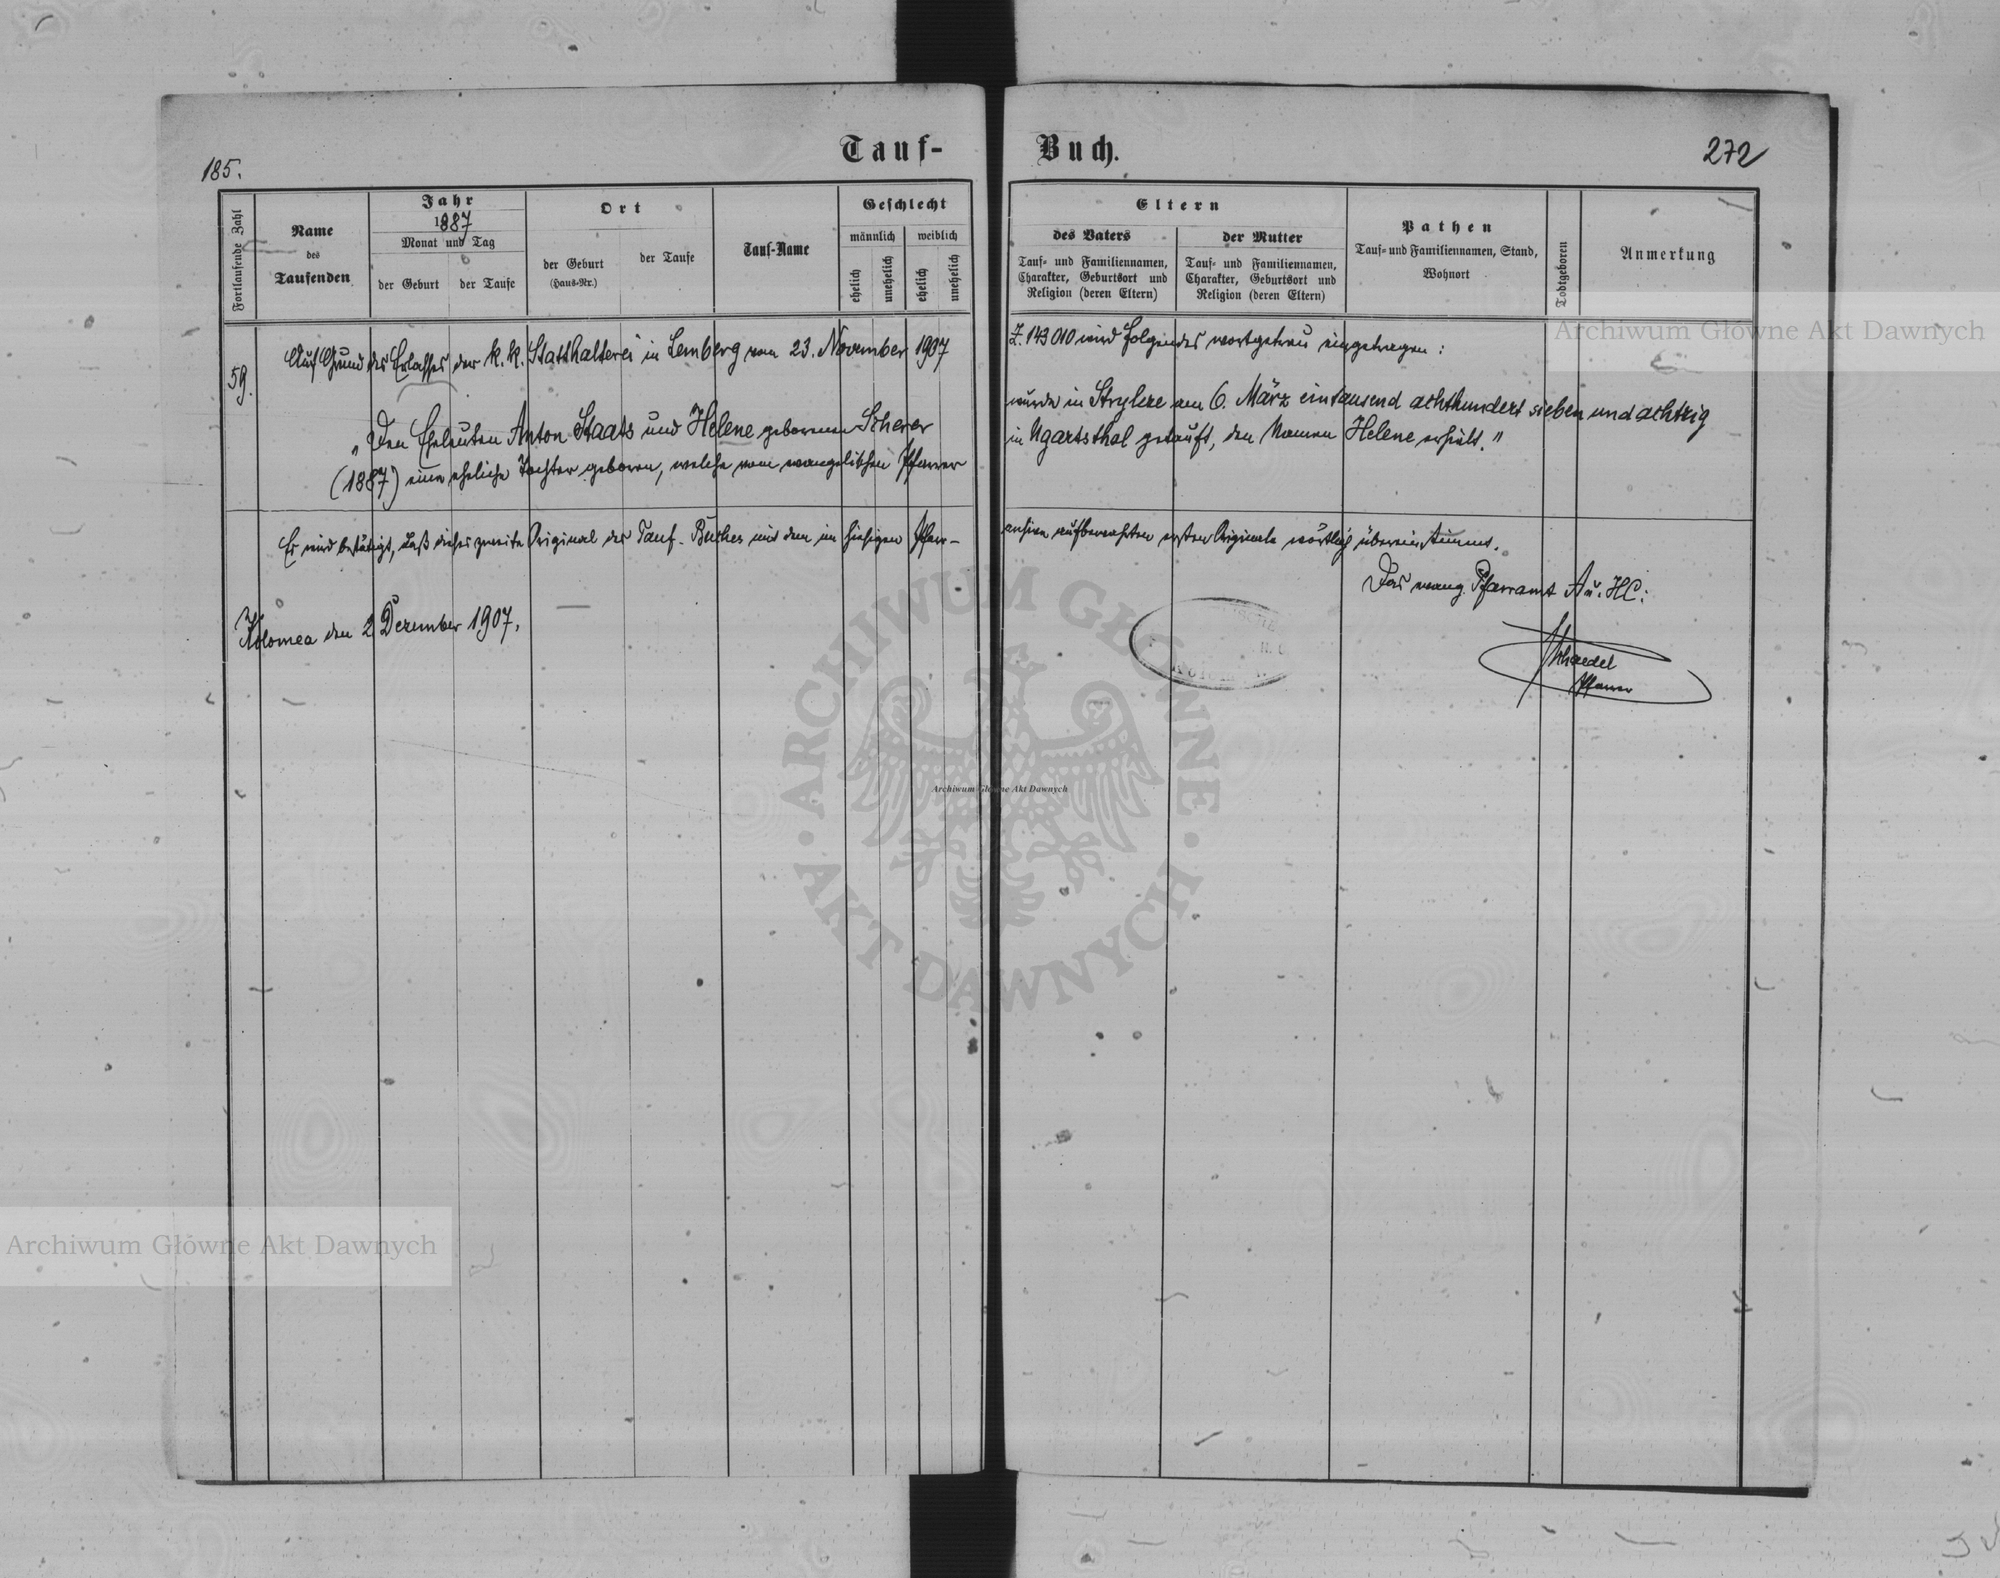 Tauf-
Buch.
185.
272
Fortlaufende Zahl
Name
des
Taufenden
Jahr
1887
Monat und Tag
der Geburt
der Taufe
Ort
der Geburt
(Haus-Nr.)
der Taufe
Tauf-Name
Geschlecht
männlich
weiblich
ehelich
unehelich
ehelich
unehelich
Eltern
des Vaters
Tauf- und Familiennamen,
Charakter, Geburtsort und
Religion (deren Eltern)
der Mutter
Tauf- und Familiennamen,
Charakter, Geburtsort und
Religion (deren Eltern)
Pathen
Tauf- und Familiennamen, Stand,
Wohnort
Todtgeboren
Anmerkung
59.
Auf Grund des Erlasses der k. k. Statthalterei in Lemberg vom 23. November 1907
Z. 143010 wird folgendes wortgetreu eingetragen:
„Den Eheleuten Anton Staats und Helene geborenen Scherer
wurde in Strylcze am 6. März eintausend achthundert sieben und achtzig
(1887) eine eheliche Tochter geboren, welche vom evangelischen Pfarrer
in Ugartsthal getauft, den Namen Helene erhielt."
Es wird bestätigt, daß dieses zweite Original des Tauf-Buches mit dem im hiesigen Pfarr-
archive aufbewahrten ersten Originale wörtlich übereinstimmt.
Das evang. Pfarramt A u. HC:
Kolomea den 2 Dezember 1907.
Schaedel
Pfarrer
Archiwum Główne Akt Dawnych
Archiwum Główne Akt Dawnych
Archiwum Główne Akt Dawnych
ARCHIWUM GŁÓWNE
AKT DAWNYCH